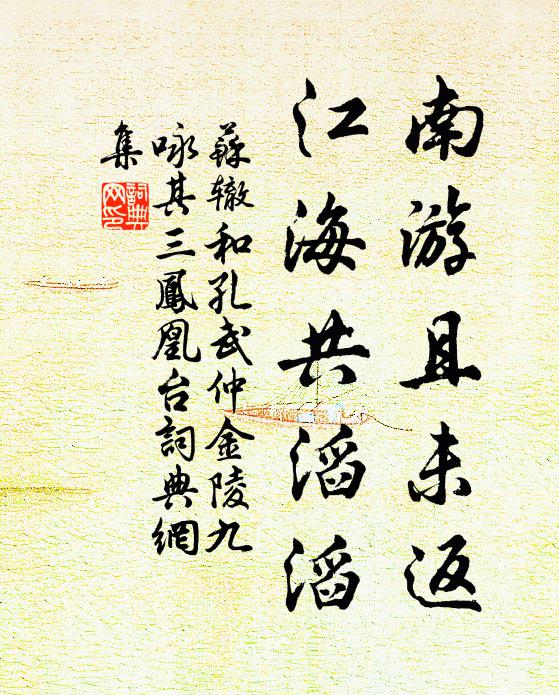 南游且未返
江海共滔滔
蘇辙和孔武仲金陵九
咏其三鳳凰台詞典網
集
詞典
网印